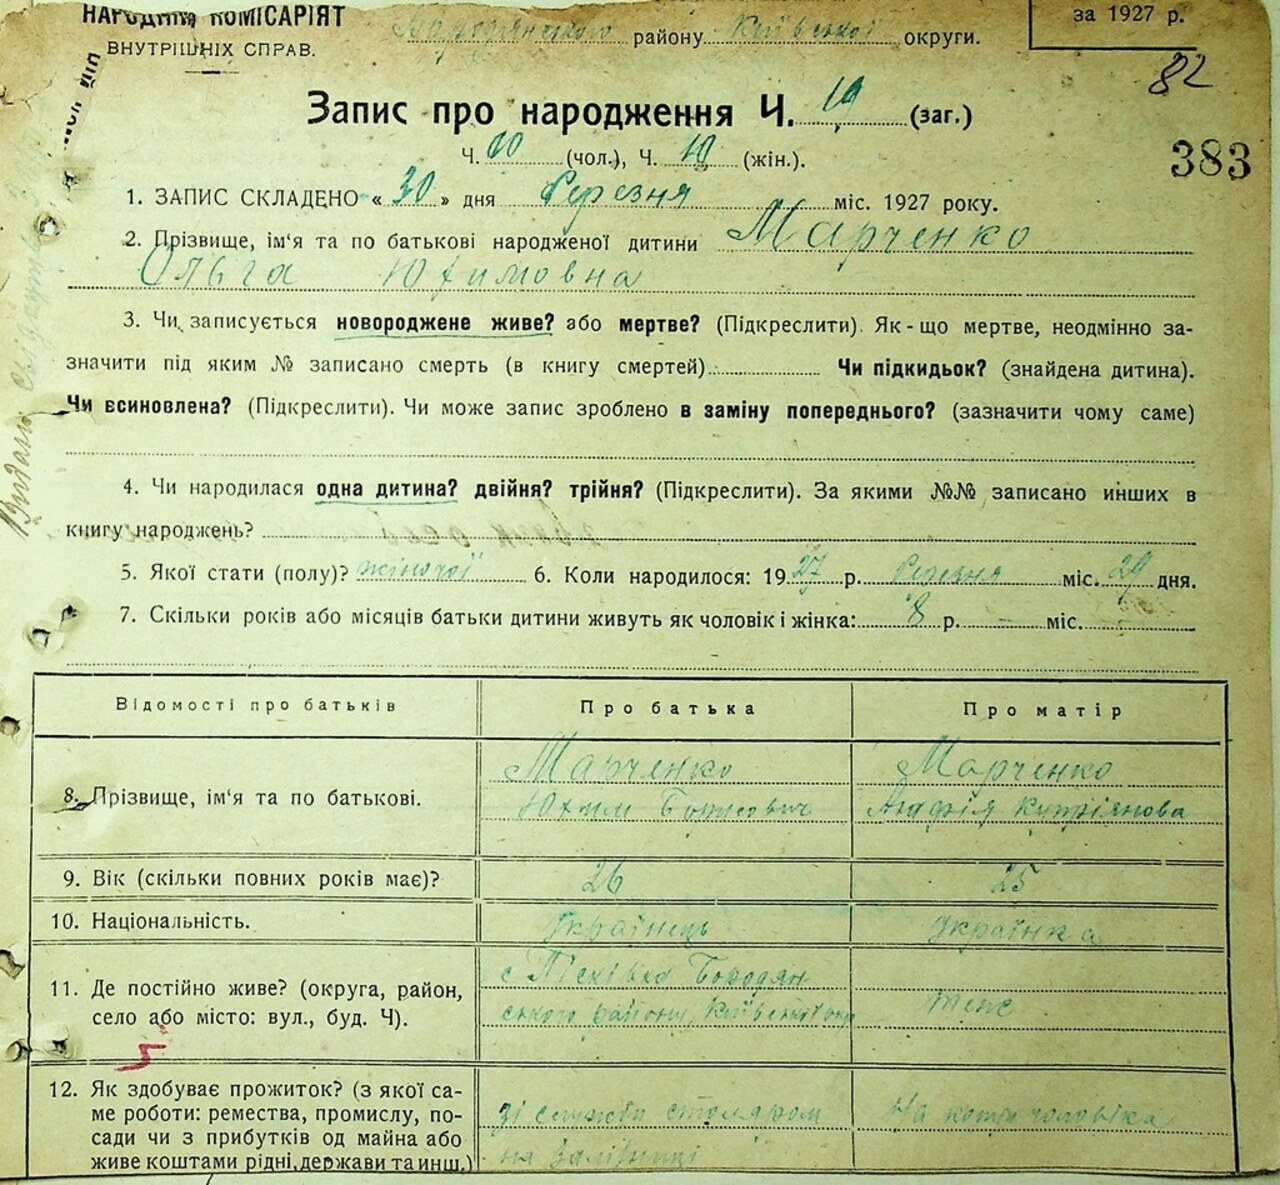 НАРОДНІЙ КОМІСАРІЯТ
ВНУТРІШНІХ СПРАВ.
Бородянського району Київської округи.
за 1927 р.
82
Запис про народження Ч. 19 (заг.)
Ч. (чол.), Ч. 10 (жін.).
383
1. ЗАПИС СКЛАДЕНО « 30 » дня березня міс. 1927 року.
2. Прізвище, ім‘я та по батькові народженої дитини Марченко
Ольга Юхимовна
3. Чи записується новороджене живе? або мертве? (Підкреслити). Як-що мертве, неодмінно за-
значити під яким № записано смерть (в книгу смертей) Чи підкидьок? (знайдена дитина).
Чи всиновлена? (Підкреслити). Чи може запис зроблено в заміну попереднього? (зазначити чому саме)
4. Чи народилася одна дитина? двійня? трійня? (Підкреслити). За якими №№ записано инших в
книгу народжень?
5. Якої стати (полу)? жіночої 6. Коли народилося: 1927 р. березня міс. 29 дня.
7. Скільки років або місяців батьки дитини живуть як чоловік і жінка: 8 р. – міс. –
Відомості про батьків Про батька Про матір
8. Прізвище, ім‘я та по батькові. Марченко Юхим Борисович Марченко Агафія Купріянова
9. Вік (скільки повних років має)? 26 25
10. Національність. Українець Українка
11. Де постійно живе? (округа, район,
село або місто: вул., буд. Ч).
с Пісківка Бородян
ського району, Київської окр
теж
12. Як здобуває прожиток? (з якої са-
ме роботи: ремества, промислу, по-
сади чи з прибутків од майна або
живе коштами рідні, держави та инш.)
зі служби столяром
на залізниці
на кошти чоловіка
Видано свідоцтво